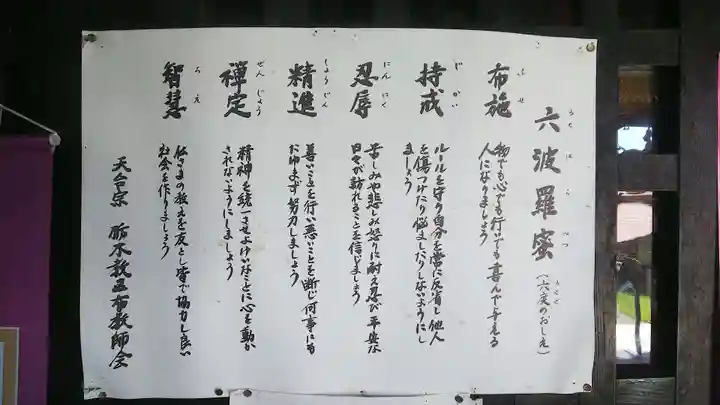 六波羅蜜(六度のおしえ)
ろくはらみつ
布施
ふせ
物でも心でも行いでも喜んで与える
人になりましょう
持戒
じかい
ルールを守り自分を常に反省し他人
を傷つけたり悩ましたりしないようにし
ましょう
忍辱
にんにく
苦しみや悲しみ怒りに耐え忍び平安な
日々が訪れることを信じましょう
精進
しょうじん
善いことを行い悪いことを断じ何事にも
たゆまず努力しましょう
禅定
ぜんじょう
精神を統一させよけいなことに心を動か
されないようにしましょう
智慧
ちえ
仏さまの教えを友とし皆で協力し良い
社会を作りましょう
天台宗 栃木教区布教師会